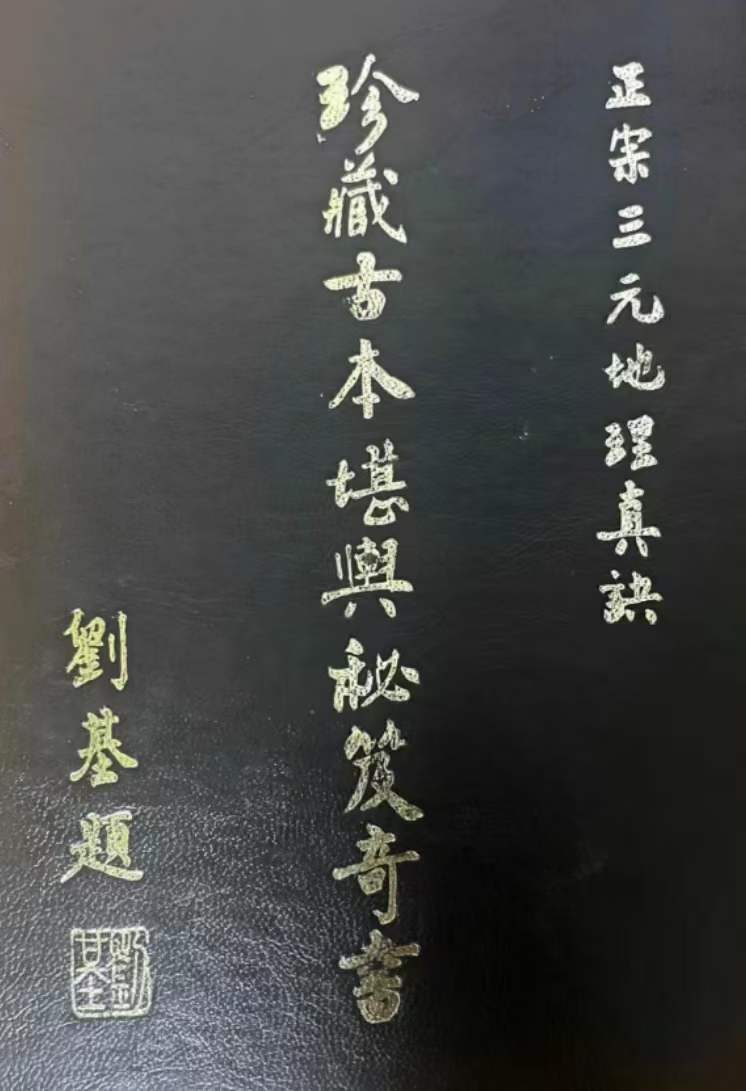 正宗三元地理真訣
珍藏古本堪輿秘笈奇書
劉基題
劉基